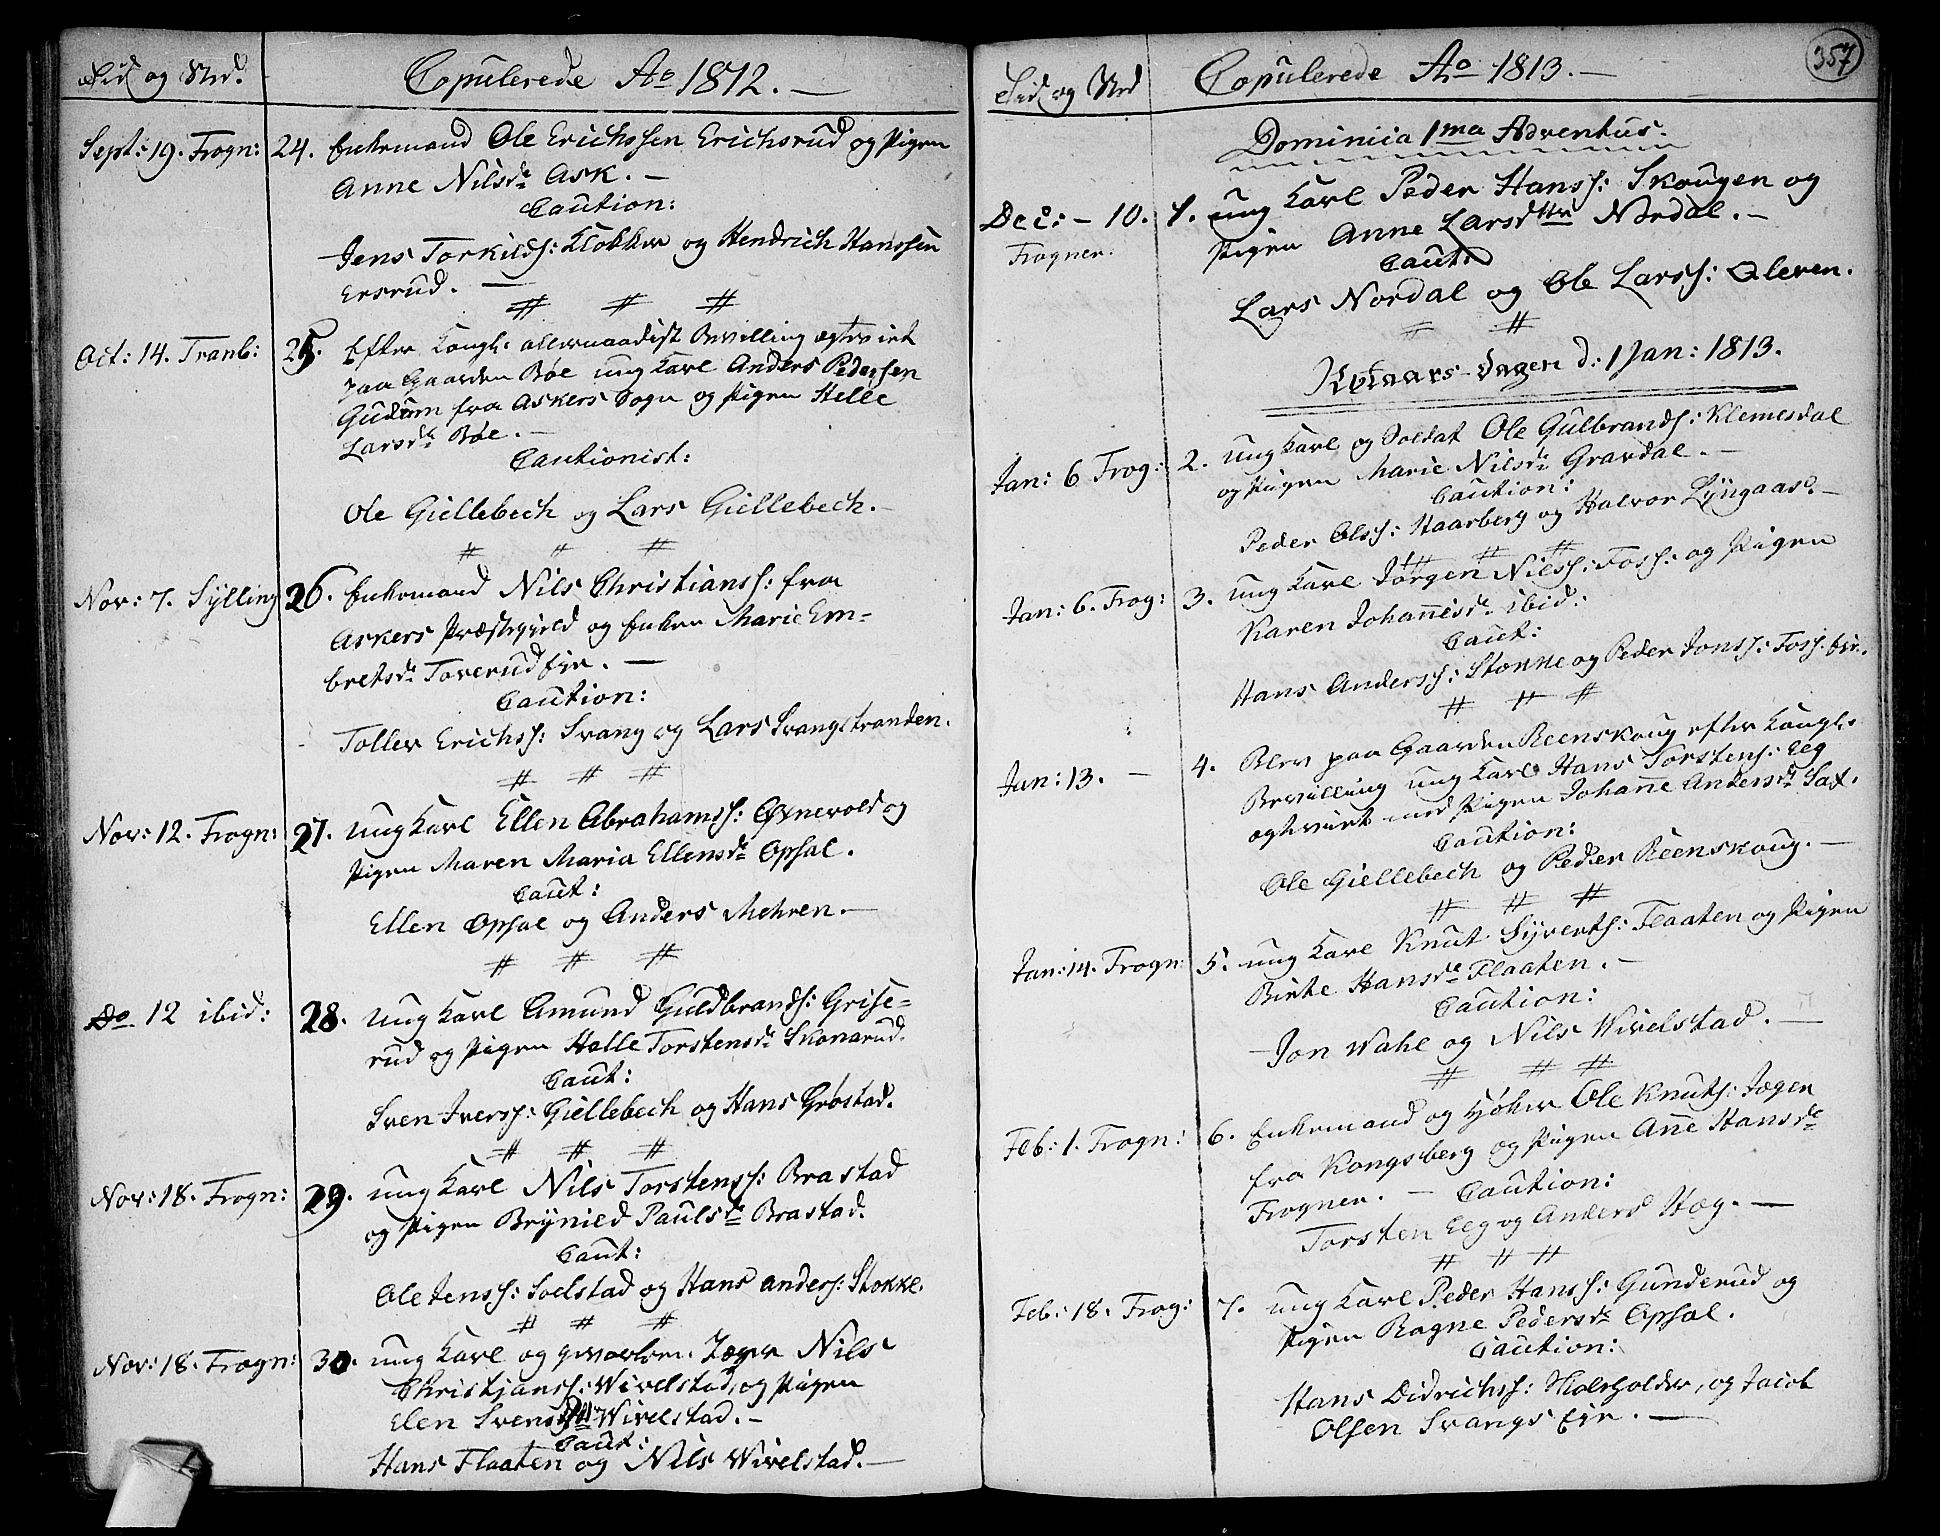 Tid og Sted.
Copulerede Ao 1812. —
Sept: 19. Frogn: 24. Enkemand Ole Erichssen Erichsrud og Pigen
Anne Nilsdr Ask. —
Caution:
Jens Torkilds: Klokker og Hendrich Hanssen
Ersrud. —
# # #
Oct: 14. Tranb: 25. Efter Kongl: allernaadigst Bevilling ægteviet
paa Gaarden Böe ung Karl Anders Pedersen
Gudum fra Askers Sogn og Pigen Helle
Larsdr Böe. —
Cautionist:
Ole Giellebech og Lars Giellebech. —
# # #
Nov: 7. Sylling 26. Enkemand Nils Christianss: fra
Askers Præstegield og Enken Marie Em=
bretsdr Toverud Eje. —
Caution:
Tollev Erichss: Svang og Lars Svangstranden.
# # #
Nov: 12. Frogn: 27. ung Karl Ellen Abrahamss: Oxnevold og
Pigen Maren Maria Ellensdr Opsal.
Caut:
Ellen Opsal og Anders Mehren. —
# # #
Do 12 ibid: 28. ung Karl Amund Guldbrands: Grise=
rud og Pigen Halle Torstensdr Skonarud.
Caut:
Sven Iverss: Giellebech og Hans Gröstad.
# # #
Nov: 18. Frogn: 29. ung Karl Nils Torstenss: Brastad
og Pigen Brynild Paulsdr Brastad.
Caut:
Ole Jenss: Soelstad og Hans Anders: Stokke.
# # #
Nov: 18. Frogn: 30. ung Karl og gevorben Jæger Nils
Christjanss: Wivelstad og Pigen
Elen Svensdtr Wivelstad. —
Caut:
Hans Flaaten og Nils Wivelstad. —
357
Tid og Sted
Copulerede Ao 1813. —
Dominica 1ma Adventus.
Dec: — 10. 1. ung Karl Peder Hanss: Skougen og
Frogner.
Pigen Anne Larsdttr Nordal. —
Caut:
Lars Nordal og Ole Larss: Oleren.
# #
Nytaars-Dagen d: 1 Jan: 1813.
Jan: 6 Frog: 2. ung Karl og Soldat Ole Gulbrands: Klemesdal
og Pigen Marie Nilsdr Gravdal. —
Caution:
Peder Olss: Haarberg og Halvor Lyngaas. —
# # #
Jan: 6. Frog: 3. ung Karl Jörgen Nilss: Foss: og Pigen
Karen Johannisdr ibid:
Caut:
Hans Anderss: Stonne og Peder Jonss: Foss. Eje.
# # #
Jan: 13. — 4. Blev paa Gaarden Reenskoug efter Kongl:
Bevilling ung Karl Hans Torstens: Eeg
ægteviet med Pigen Johanne Andersdr Sax.
Caution:
Ole Giellebech og Peder Reenskoug. —
# # #
Jan: 14. Frogn: 5. ung Karl Knut Syverts: Flaaten og Pigen
Birte Hansdr Flaaten. —
Caution:
Jon Wahl og Nils Wivelstad. —
# # #
Feb: 1. Frogn: 6. Enkemand og Kjöber Ole Knuts: Jegen
fra Kongsberg og Pigen Anne Hansdr
Frogner. — Caution:
Torsten Eeg og Anders Hæg. —
# # #
Feb: 18. Frog: 7. ung Karl Peder Hanss: Gunderud og
Pigen Ragne Pedersdr Opsal.
Caution:
Hans Didrichss: Skoleholder, og Jacob
Olsen Svangs Eje. —